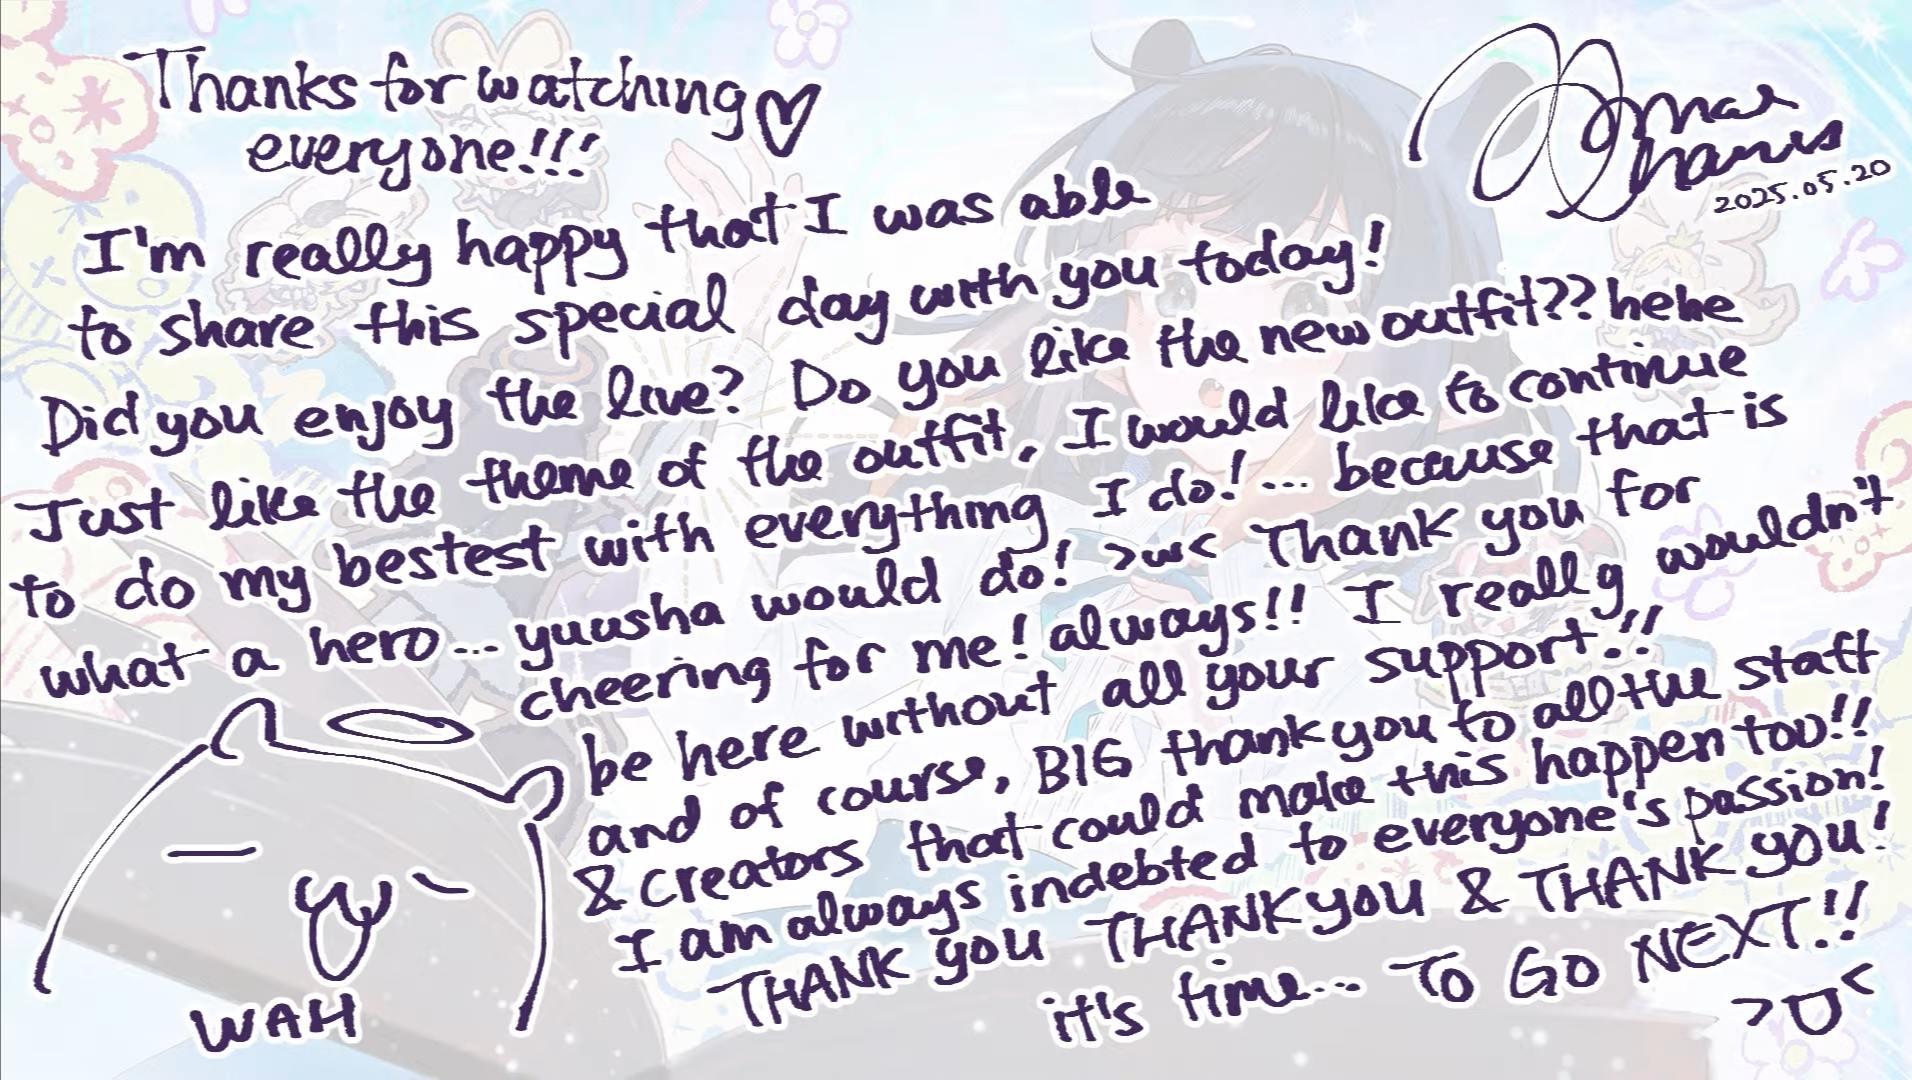 Thanks for watching ♡
everyone!!!
2025.05.20
I'm really happy that I was able
to share this special day with you today!
Did you enjoy the live? Do you like the new outfit?? hehe
Just like the theme of the outfit, I would like to continue
to do my bestest with everything I do!... because that is
what a hero... yuusha would do! >w< Thank you for
cheering for me! always!! I really wouldn't
be here without all your support!!
and of course, BIG thank you to all the staff
& creators that could make this happen too!!
I am always indebted to everyone's passion!
THANK you THANK you & THANK you!
it's time... TO GO NEXT!!
>O<
WAH